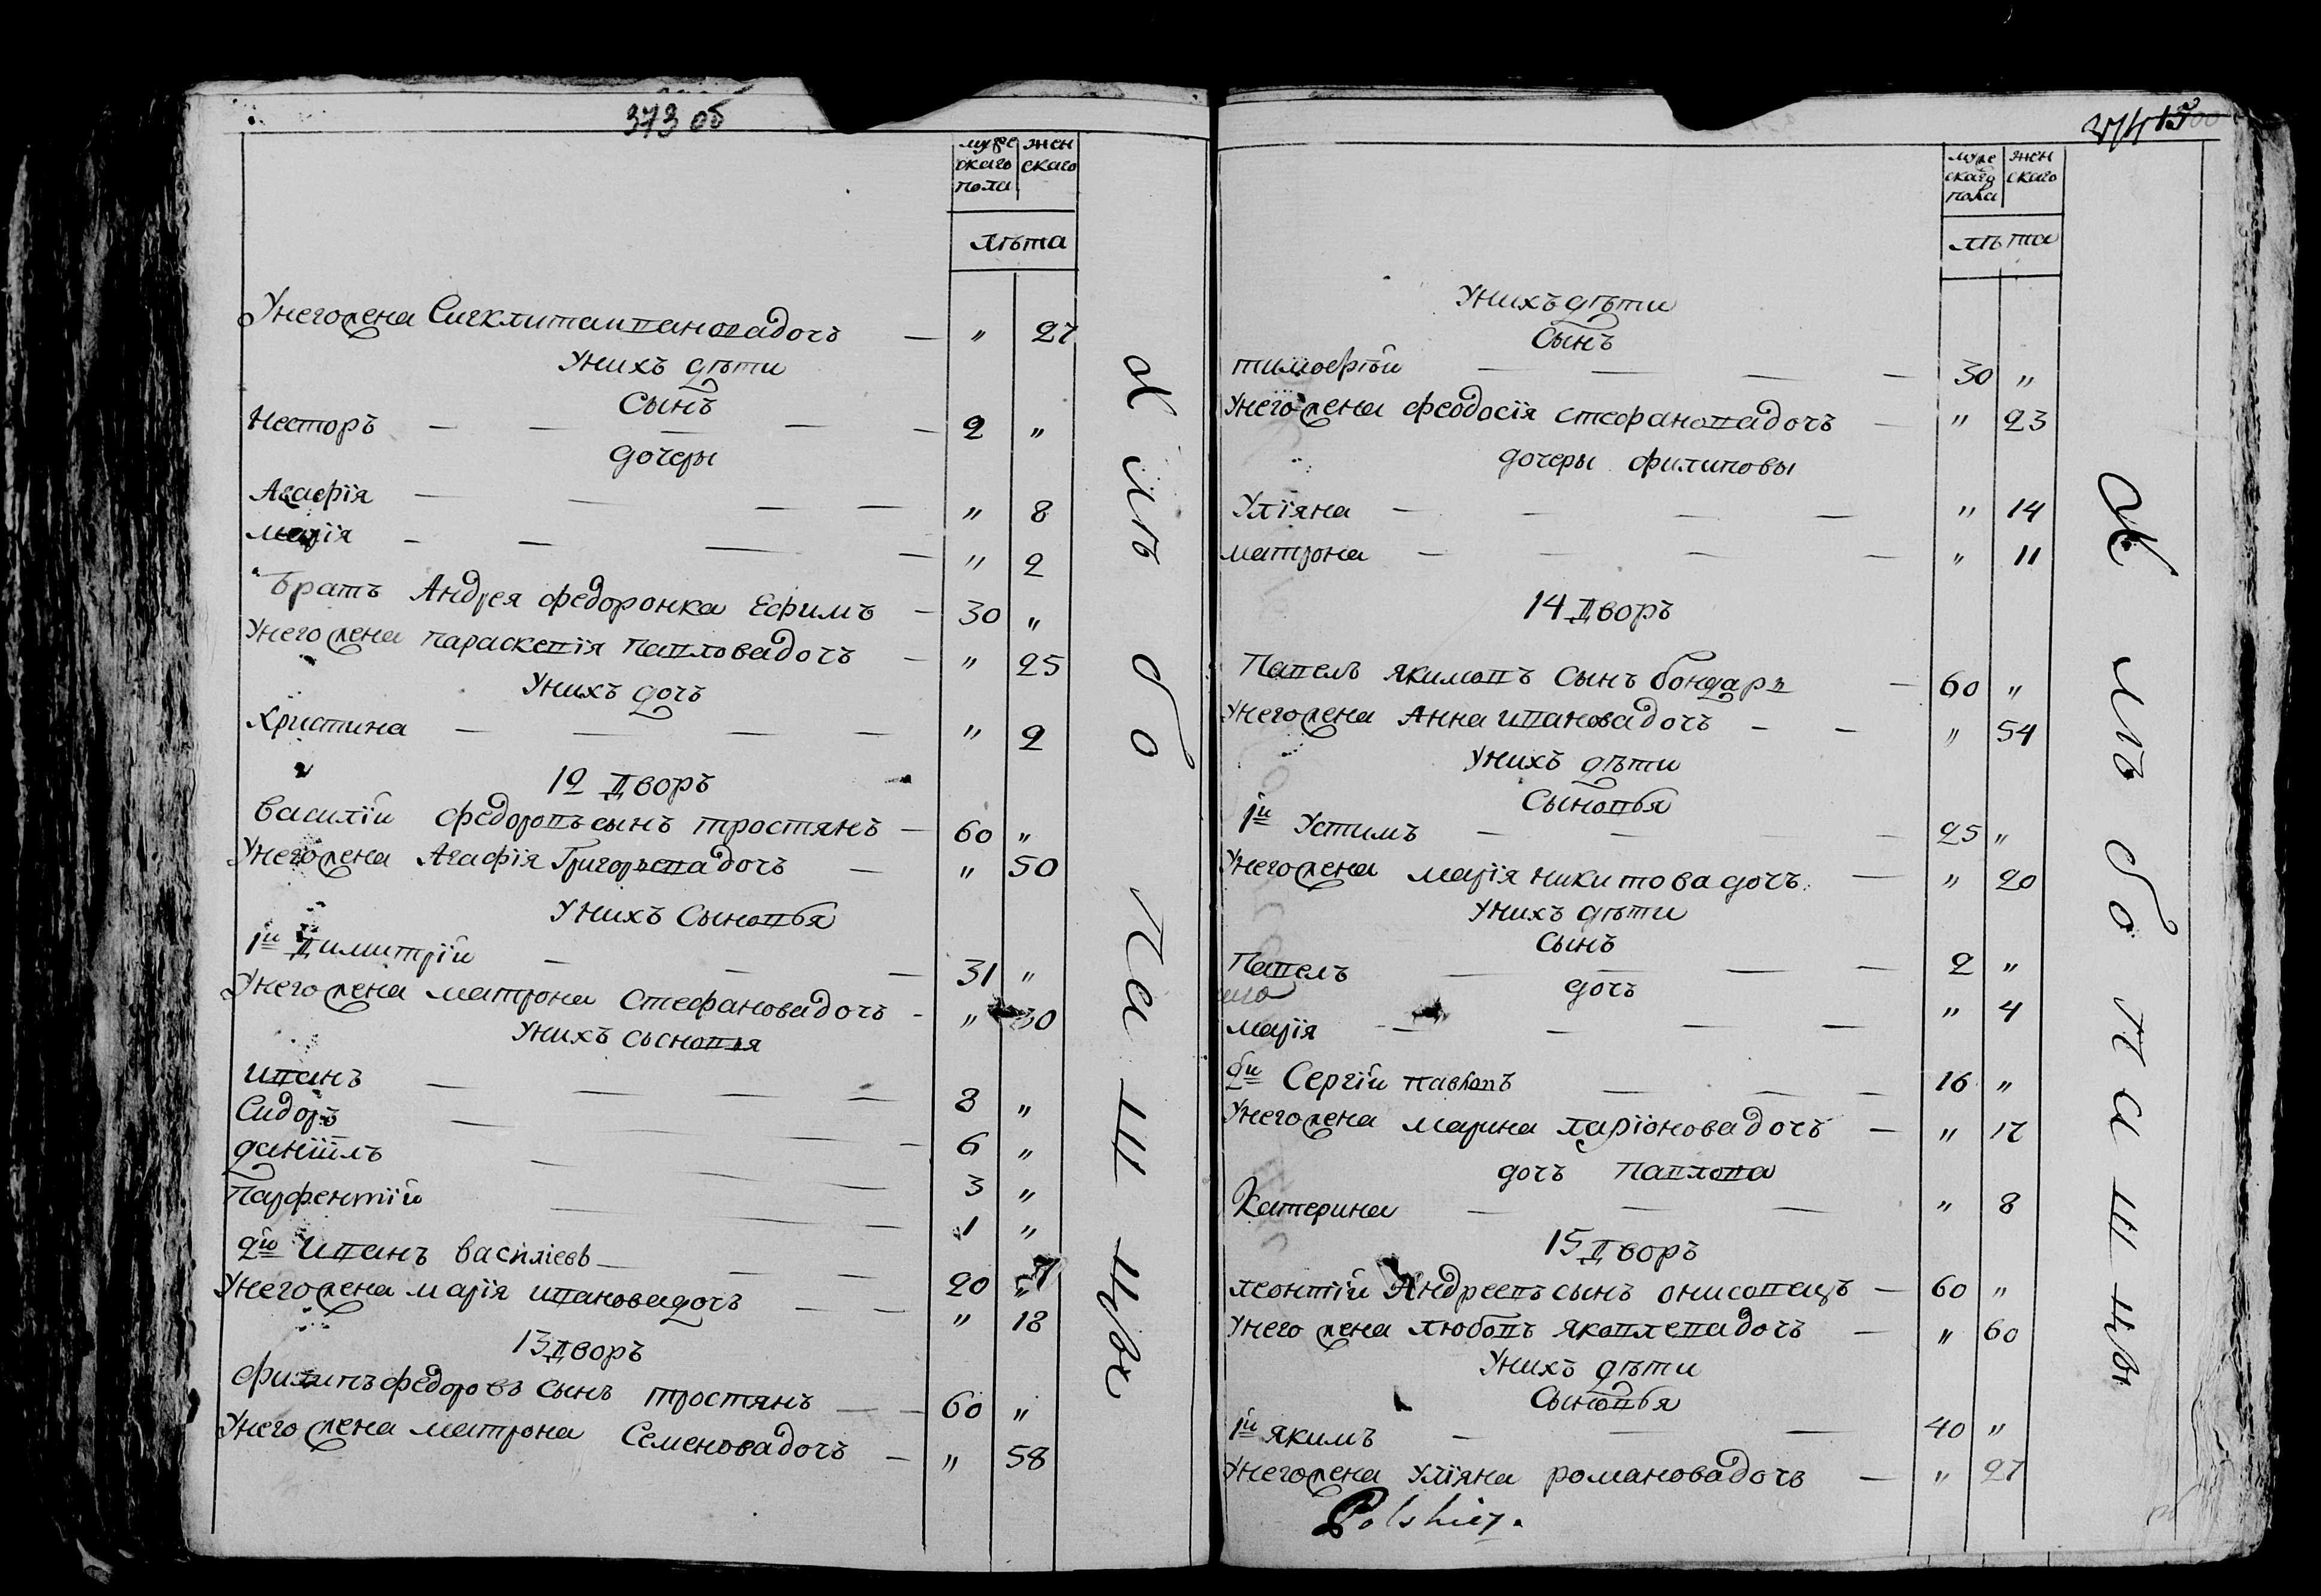 373 об
муже
скаго
пола
жен
скаго
лѣта
У него жена Сигклитаи ивановадочь — " 27
У нихъ дѣти
Сынъ
Несторъ — 2 "
дочеры
Агафїя — " 8
марїя — " 2
братъ Андрея федоронка Ефимъ — 30 "
У него жена параскевїя павловадочъ — " 25
У нихъ дочъ
Христина — " 2
12 Дворъ
Василїи федоровъ сынъ тростянъ — 60 "
У него жена Агафїя Григорьевадочъ — " 50
У нихъ Сыновья
1и Димитрїи — 31 "
У него жена матрона Стефановадочъ — " 30
У нихъ сыновья
иванъ — 8 "
Сидоръ — 6 "
данїилъ — 3 "
Парфентїи — 1 "
2и иванъ василїевъ — 20 "
У него жена марїя ивановадочъ — " 18
13 Дворъ
филипъ федоровъ сынъ тростянъ — 60 "
У него жена матрона Семеновадочъ — " 58
хлѣбопашцы
374
15
муже
скаго
пола
жен
скаго
лѣта
У нихъ дѣти
Сынъ
тимофѣй — 30 "
У него жена феодосїя стефановадочъ — " 23
дочеры филиповы
Улїяна — " 14
матрона — " 11
14 Дворъ
Павелъ якимовъ сынъ бондаръ — 60 "
У него жена Анна ивановадочъ — " 54
У нихъ дѣти
Сыновья
1и Устимъ — 25 "
У него жена марїя никитовадочъ — " 20
У нихъ дѣти
сынъ
Павелъ — 2 "
дочъ
марїя — " 4
2и Сергїи павловъ — 16 "
У него жена марина ларїоновадочъ — " 17
дочъ павлова
Катерина — " 8
15 Дворъ
леонтїи Андреевъ сынъ онисовецъ — 60 "
У него жена любовъ яковлевадочъ — " 60
У нихъ дѣти
Сыновья
1и якимъ — 40 "
У него жена улїяна романовадочъ — " 27
хлѣбопашцы